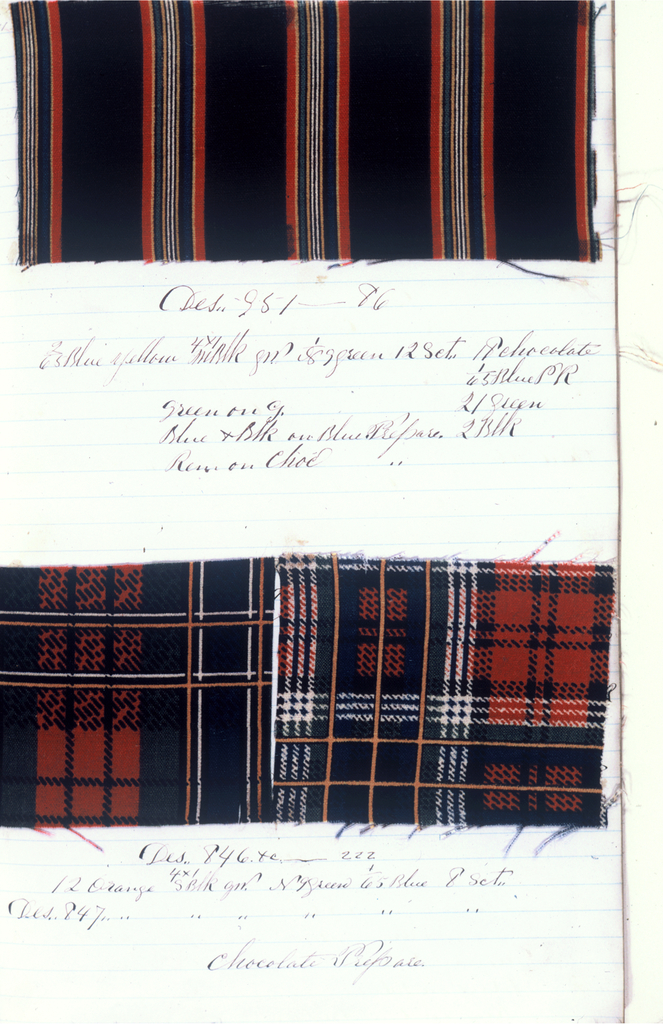 Des. 951 — 86
65 Blue Yellow 4x1 Blk gn⁰ green 12 Sct. chocolate
65 Blue PR
Green on g. 21 Green
Blue + Blk on Blue Prepare. 2 Blk
Rem on Choc "
Des. 846. &c. — 222
12 Orange 4x1 5 Blk gn⁰ N⁰4 Green 65 Blue 8 Sct.
Des. 847. " " " " " "
Chocolate Prepare.